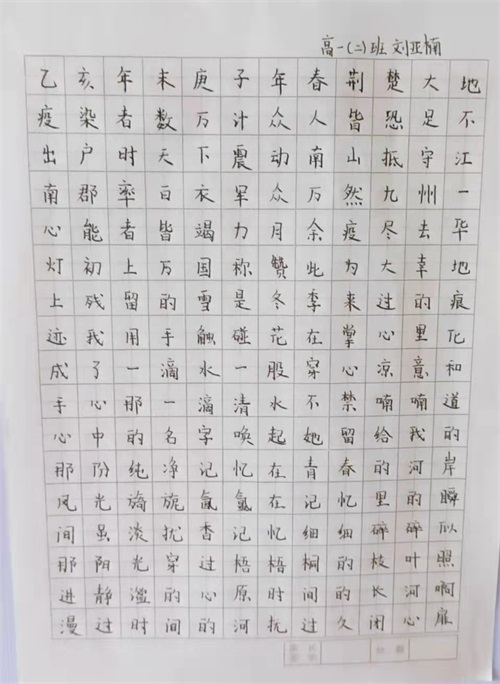 高一(二)班 刘亚楠
乙亥年末庚子年春荆楚大地
疫染者数万计众人皆恐足不
出户时天下震动南山抵守江
南郡率白衣军众万然九州一
心能者皆竭力月余疫尽去华
灯初上万国称赞此为大幸地
上残留的雪是冬季来过的痕
迹我用手触碰花在掌心里化
成了一滴水一股穿心凉意和
手心那一滴清水不禁喃喃道
心中的名字唤起她留给我的
那份纯净记忆在青春的河岸
风光旖旎氤氲在记忆里的瞬
间虽淡扰香记忆细细碎碎似
那阳光穿过梧梧桐的枝叶照
进静滥的心原时间的长河啊
漫过时间的河抚过久闭心扉